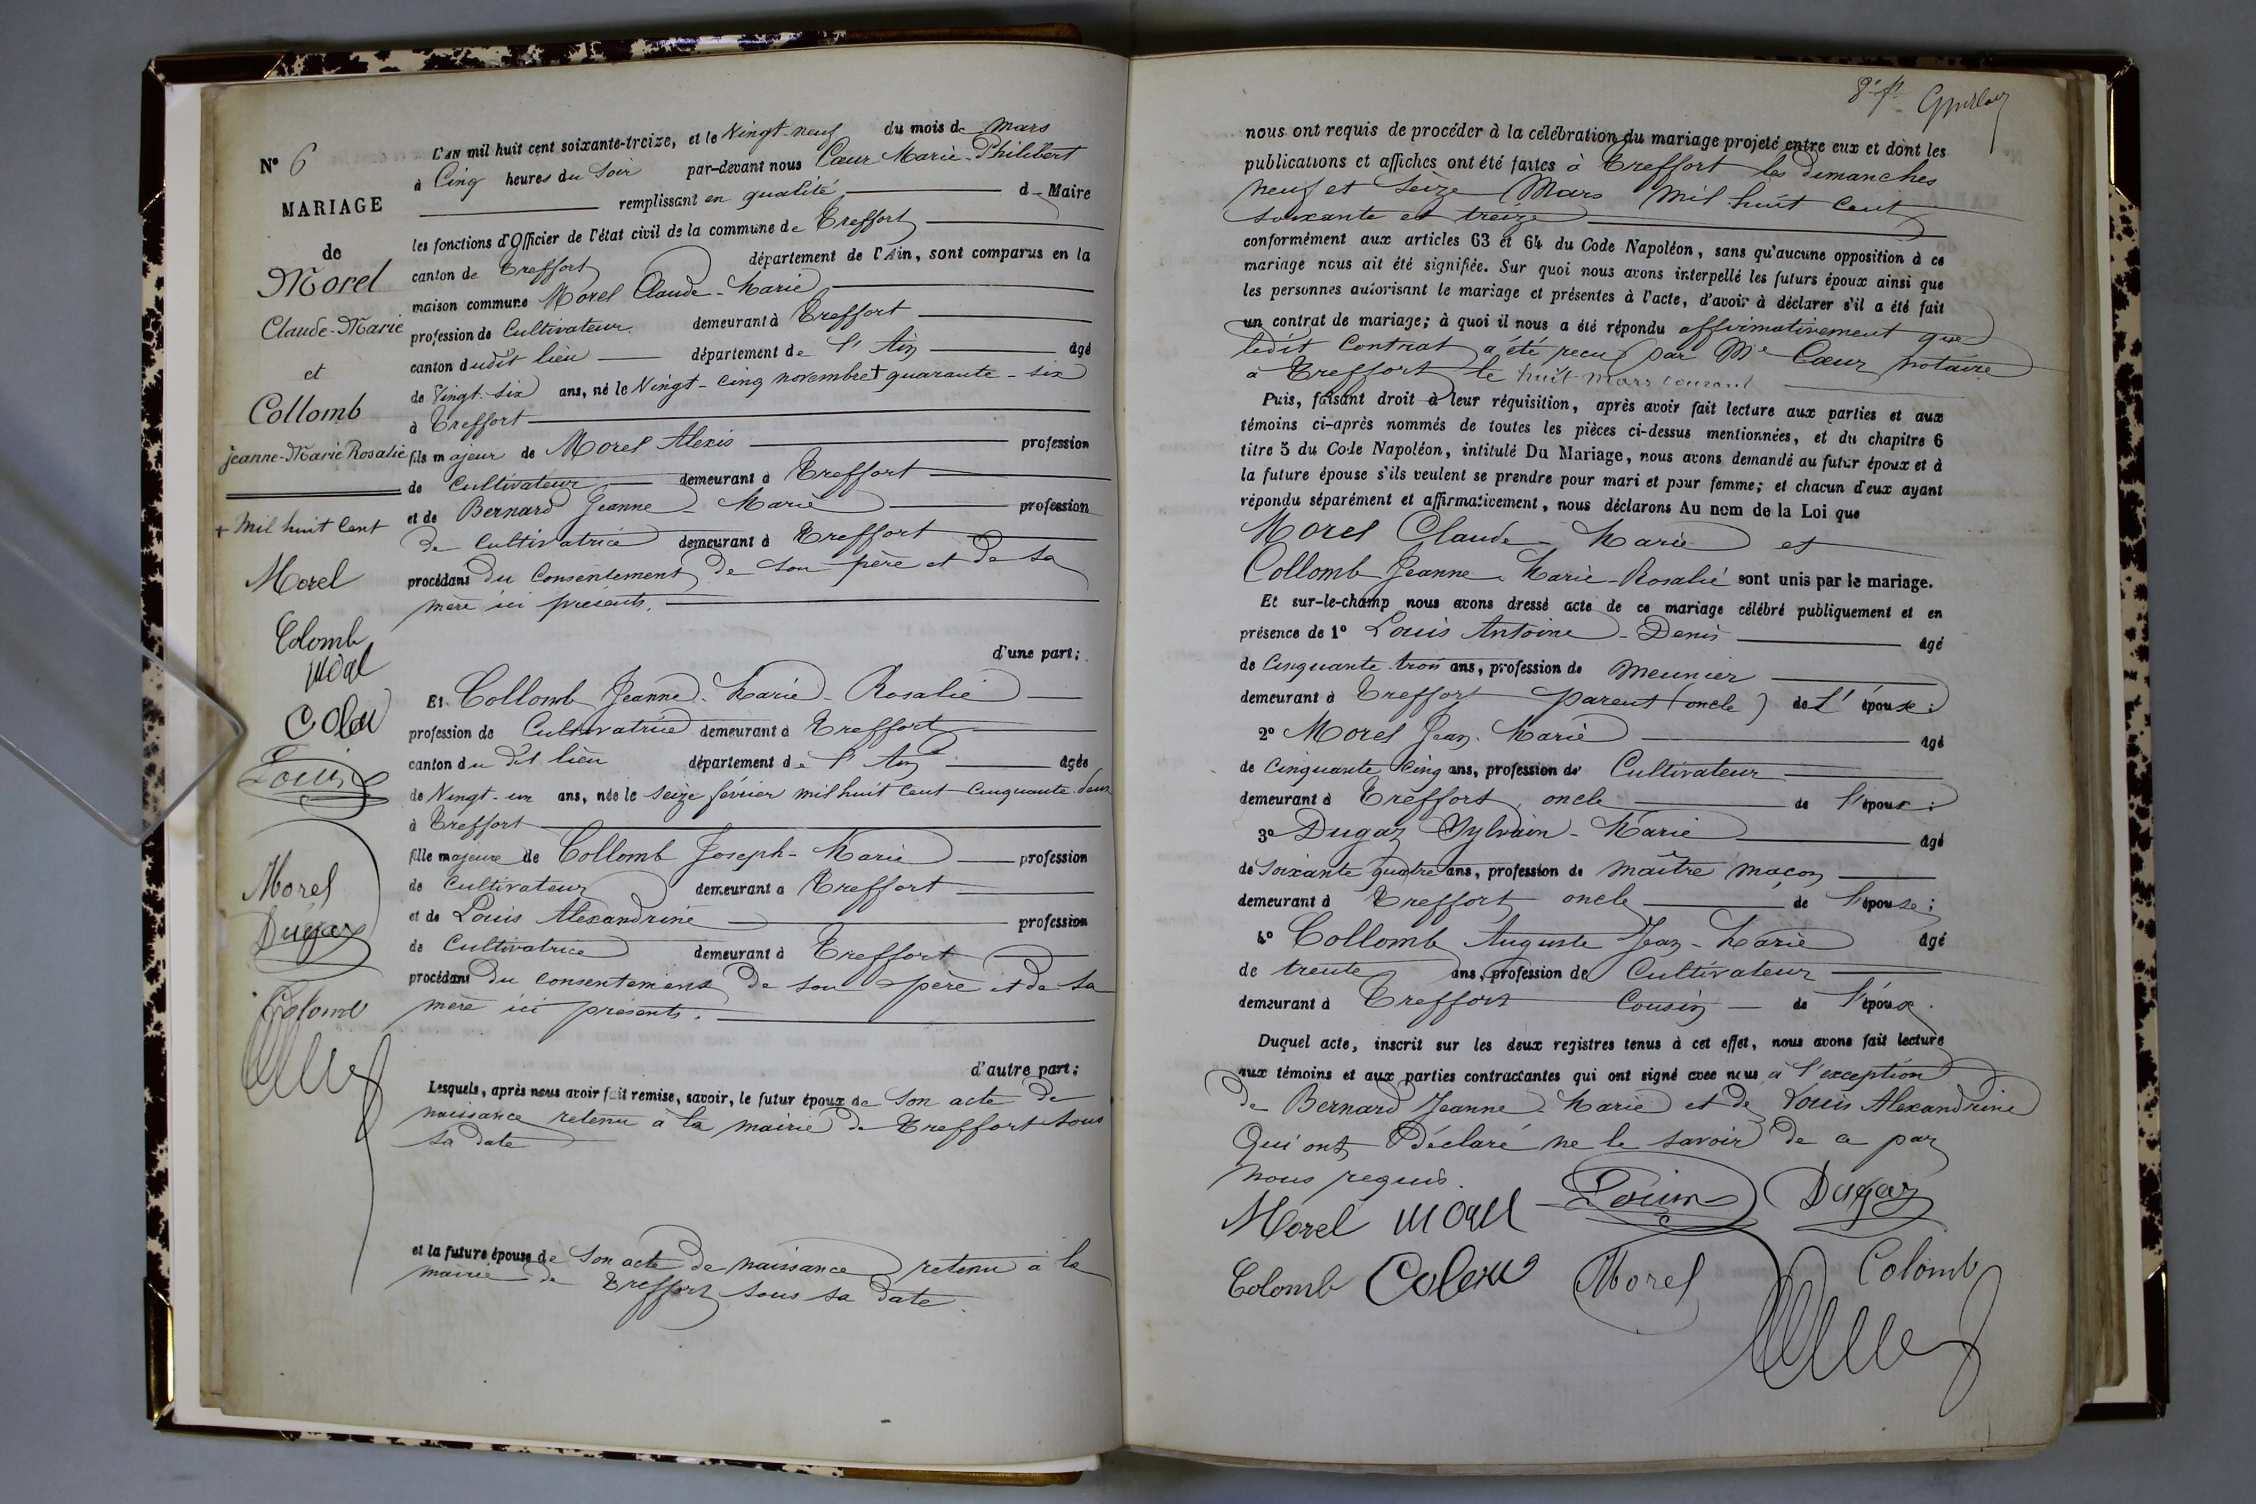 N° 6
MARIAGE
de
Morel
Claude-Marie
et
Collomb
jeanne-Marie Rosalie
+ Mil huit Cent
Morel
Colomb
Louis
Morel
Dugaz
Colomb
L'AN mil huit cent soixante-treize, et le Vingt-neuf du mois de Mars
à Cinq heures du Soir par-devant nous Cœur Marie-Philibert
remplissant en qualité d Maire
les fonctions d'Officier de l'état civil de la commune de Treffort
canton de Treffort département de l'Ain, sont comparus en la
maison commune Morel Claude-Marie
profession de Cultivateur demeurant à Treffort
canton dudit lieu département de l'Ain âgé
de Vingt-six ans, né le Vingt-cinq novembre + quarante-six
à Treffort
fils majeur de Morel Alexis profession
de Cultivateur demeurant à Treffort
et de Bernard Jeanne Marie profession
de Cultivatrice demeurant à Treffort
procédant du Consentement de son père et de sa
mère ici présents.
d'une part;
Et Collomb Jeanne-Marie-Rosalie
profession de Cultivatrice demeurant à Treffort
canton du dit lieu département de l'Ain âgée
de Vingt-un ans, née le seize février mil huit cent cinquante deux
à Treffort
fille majeure de Collomb Joseph-Marie profession
de Cultivateur demeurant à Treffort
et de Louis Alexandrine profession
de Cultivatrice demeurant à Treffort
procédant du consentement de son père et de sa
mère ici présents.
d'autre part;
Lesquels, après nous avoir fait remise, savoir, le futur époux de son acte de
naissance retenu à la mairie de Treffort sous
sa date
et la future épouse de son acte de naissance retenu à la
mairie de Treffort sous sa date.
nous ont requis de procéder à la célébration du mariage projeté entre eux et dont les
publications et affiches ont été faites à Treffort les dimanches
neuf et seize Mars mil huit cent
soixante et treize
conformément aux articles 63 et 64 du Code Napoléon, sans qu'aucune opposition à ce
mariage nous ait été signifiée. Sur quoi nous avons interpellé les futurs époux ainsi que
les personnes autorisant le mariage et présentes à l'acte, d'avoir à déclarer s'il a été fait
un contrat de mariage; à quoi il nous a été répondu affirmativement que
ledit Contrat a été reçu par Me Cœur notaire
à Treffort le huit Mars courant
Puis, faisant droit à leur réquisition, après avoir fait lecture aux parties et aux
témoins ci-après nommés de toutes les pièces ci-dessus mentionnées, et du chapitre 6
titre 5 du Code Napoléon, intitulé Du Mariage, nous avons demandé au futur époux et à
la future épouse s'ils veulent se prendre pour mari et pour femme; et chacun d'eux ayant
répondu séparément et affirmativement, nous déclarons Au nom de la Loi que
Morel Claude-Marie et
Collomb Jeanne-Marie-Rosalie sont unis par le mariage.
Et sur-le-champ nous avons dressé acte de ce mariage célébré publiquement et en
présence de 1° Louis Antoine-Denis âgé
de Cinquante-trois ans, profession de Meunier
demeurant à Treffort parent (oncle) de L'épouse;
2° Morel Jean-Marie âgé
de Cinquante cinq ans, profession de Cultivateur
demeurant à Treffort oncle de l'époux;
3° Dugaz Sylvain-Marie âgé
de Soixante quatre ans, profession de maître maçon
demeurant à Treffort oncle de l'épouse;
4° Collomb Auguste Jean-Marie âgé
de trente ans, profession de Cultivateur
demeurant à Treffort Cousin de l'époux.
Duquel acte, inscrit sur les deux registres tenus à cet effet, nous avons fait lecture
aux témoins et aux parties contractantes qui ont signé avec nous à l'exception
de Bernard Jeanne-Marie et de Louis Alexandrine
Qui ont Déclaré ne le savoir de ce par
nous requis.
Morel Louis Dugaz
Colomb Morel Colomb